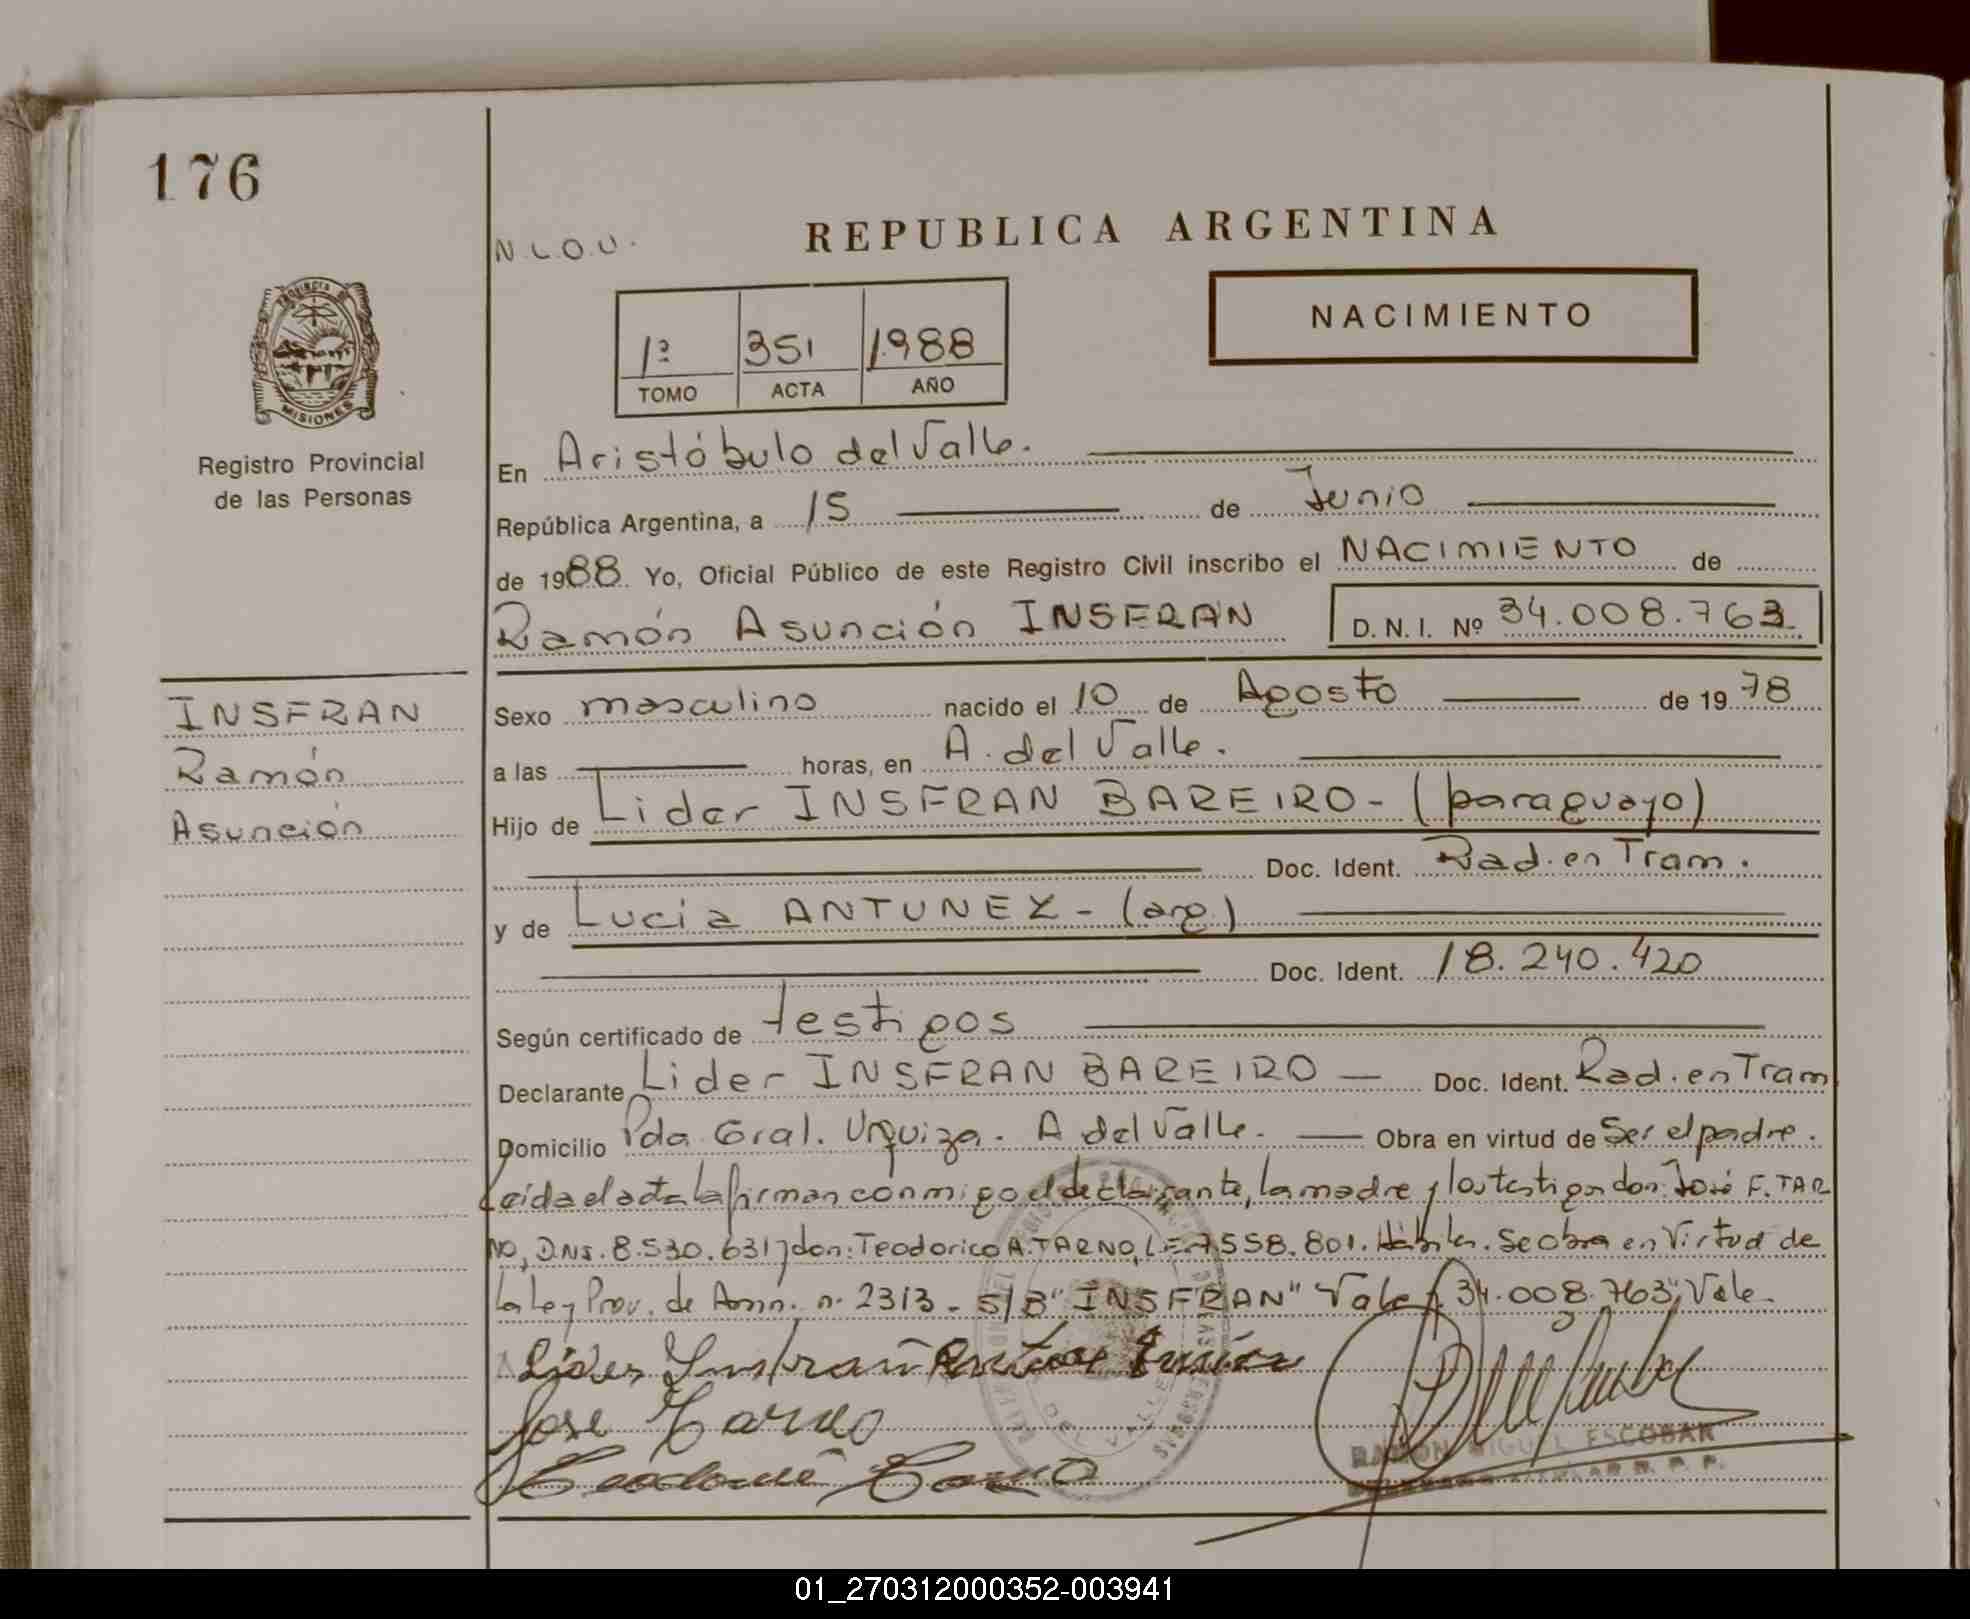 176
N.L.O.U.
REPUBLICA ARGENTINA
PROVINCIA DE
MISIONES
NACIMIENTO
1º 351 1988
TOMO ACTA AÑO
Registro Provincial
de las Personas
En Aristóbulo del Valle.
República Argentina, a 15 de Junio
de 1988 Yo, Oficial Público de este Registro Civil inscribo el NACIMIENTO de
Ramón Asunción INSFRAN D.N.I. Nº 34.008.763
INSFRAN
Ramón
Asunción
Sexo masculino nacido el 10 de Agosto de 1978
a las horas, en A. del Valle.
Hijo de Lider INSFRAN BAREIRO - (paraguayo)
Doc. Ident. Rad. en Tram.
y de Lucia ANTUNEZ - (arg.)
Doc. Ident. 18.240.420
Según certificado de testigos
Declarante Lider INSFRAN BAREIRO — Doc. Ident. Rad. en Tram
Domicilio Pda. Gral. Urquiza. A del Valle. — Obra en virtud de Ser el padre.
Leida el acta la firman conmigo el declarante, la madre y los testigos don: José F. TAR
NO, D.N.I. 8.530.631 y don: Teodorico A. TARNO, L.E. 7.558.801. Hábiles. Se obra en Virtud de
la Ley Prov. de Amn. n. 2313 - S/B "INSFRAN" Vale y "34.008.763" Vale.
Lider Insfran
Jose Tarno
RAMON MIGUEL ESCOBAR
01_270312000352-003941